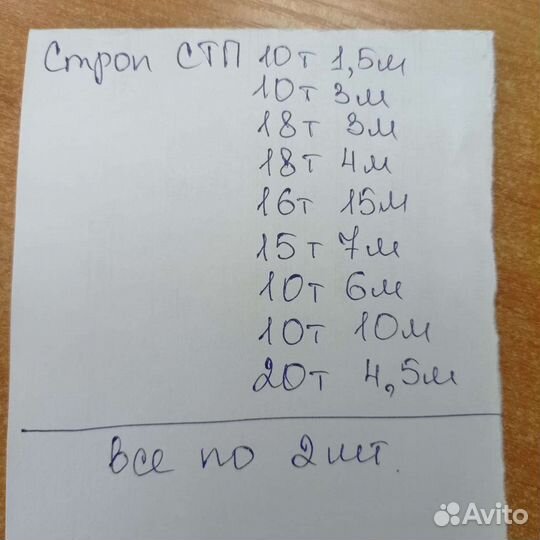 Строп СТП 10т 1,5м
10т 3м
18т 3м
18т 4м
16т 15м
15т 7м
10т 6м
10т 10м
20т 4,5м
все по 2шт.
Avito